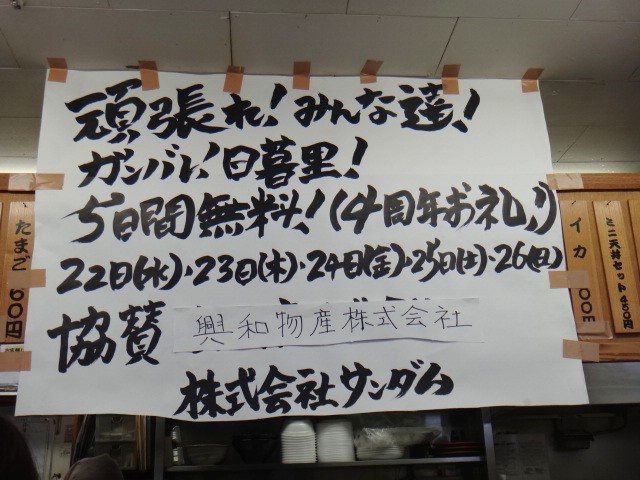 頑張れ!みんな達!
ガンバレ!日暮里!
5日間無料!(4周年お礼!)
22日(水)・23日(木)・24日(金)・25日(土)・26(日)
協賛 興和物産株式会社
株式会社サンダム
たまご 60円
イカ
ミニ天丼セット 450円